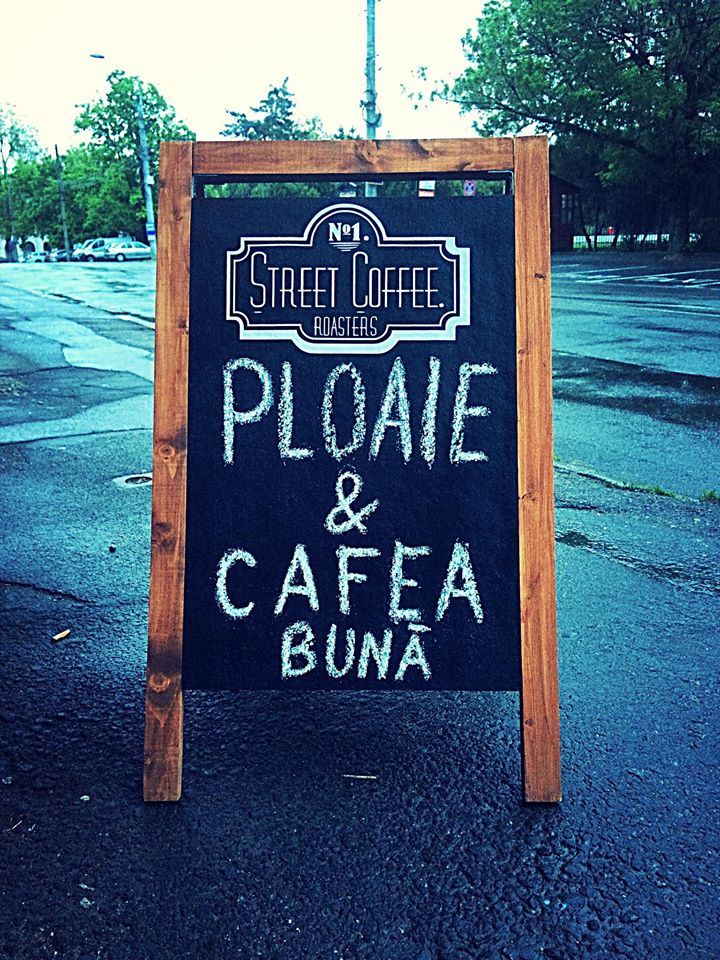 Nº1.
STREET COFFEE.
ROASTERS
PLOAIE
&
CAFEA
BUNĀ